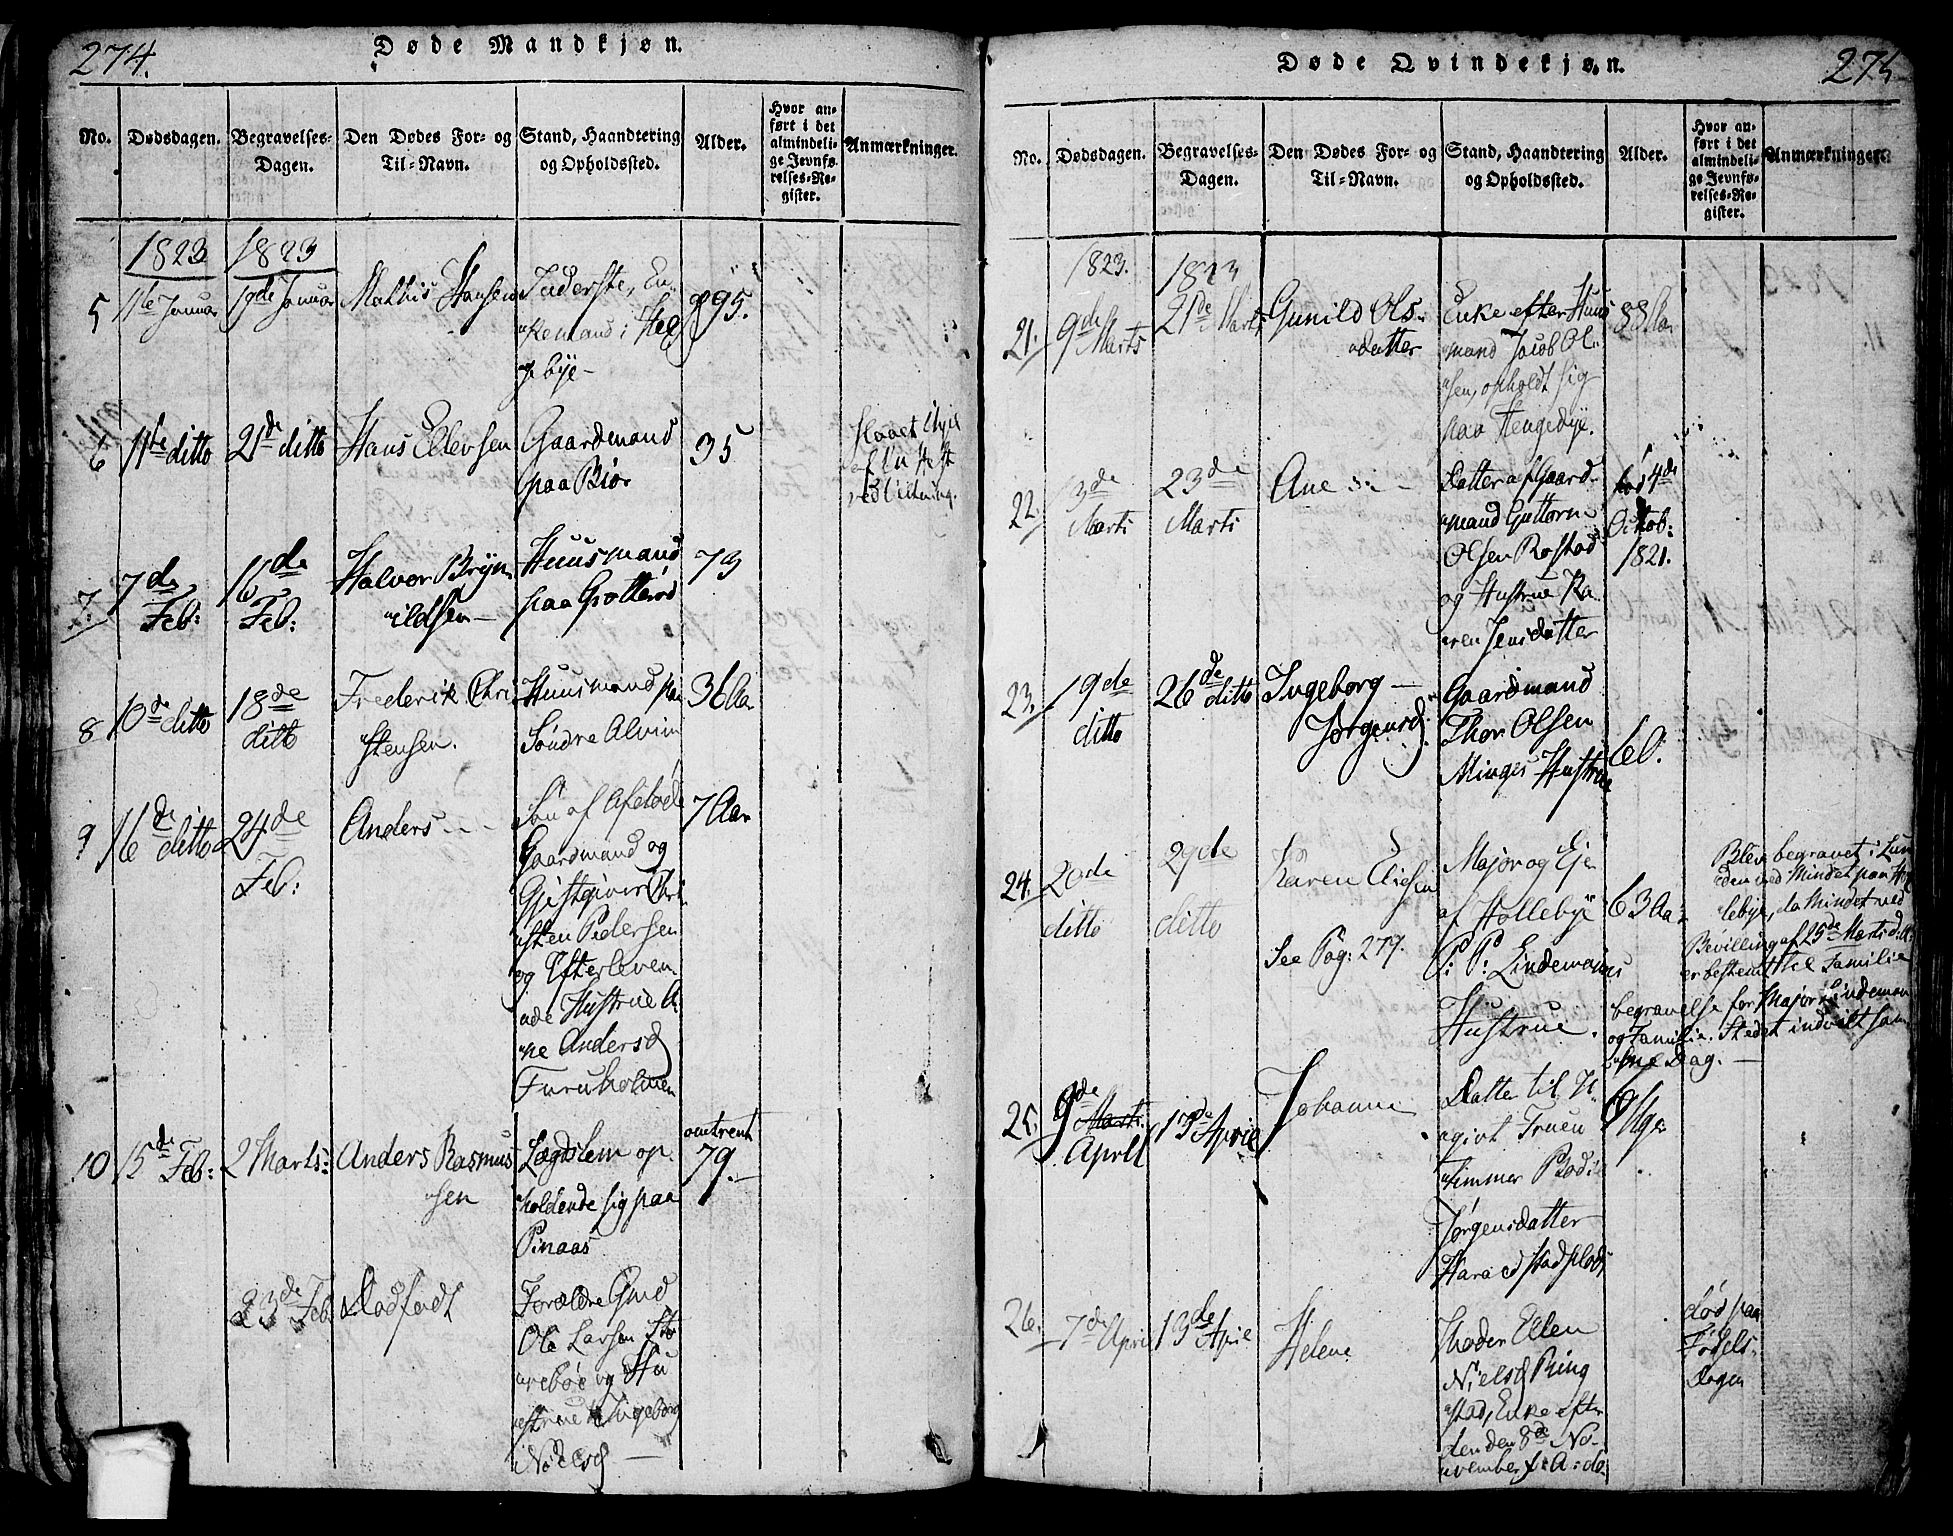 274.
Døde Mandkjøn.
No.
Dødsdagen.
Begravelses-
Dagen.
Den Dødes For- og
Til-Navn.
Stand, Haandtering
og Opholdssted.
Alder.
Hvor an-
ført i det
almindeli-
ge Jevnfø-
relses-Re-
gister.
Anmærkninger.
1823
1823
5
11te Januar
19de Januar
Mathis Hansen
Inderste, En-
kemand i
bye
95.
6
11te ditto
21de ditto
Hans Ellevsen
Gaardmand
paa Biør
35
Slaaet ihjel
af en Hest
ved
7.
7de
Feb:
16de
Feb:
Halvor Bryn
ildsen
Huusmand
paa Grøtterød
73
8
10de ditto
18de
ditto
Frederik Chri
stensen.
Huusmand paa
Søndre Alvim
36 Aa
9
16de ditto
24de
Feb:
Anders
Søn af Afdøde
Gaardmand og
Gjestgiver Chri
sten Pedersen
og Efterleven
de Hustrue A
ne Andersd
Furuholmen
7 Aar
10
15de Feb:
2 Marts:
Anders Rasmus
sen
Lægdslem op-
holdende sig paa
Pinaas
omtrent
79.
23de Feb
Dødfødt
Forældre Gmd
Ole Larsen Sto
rebøe og Hu
strue Ingeborg
Nielsd
275
Døde Qvindekjøn.
No.
Dødsdagen.
Begravelses-
Dagen.
Den Dødes For- og
Til-Navn.
Stand, Haandtering
og Opholdssted.
Alder.
Hvor an-
ført i det
almindeli-
ge Jevnfø-
relses-Re-
gister.
Anmærkninger.
1823.
1823
21.
9de
Marts
21de Marts
Gunild Ols-
datter
Enke efter Huus
mand Jacob Ol-
sen, opholdt sig
paa Hengebye.
88 Aa
22.
13de
Marts
23de
Marts
Ane
Datter af Gaard-
mand Guttorm
Olsen Rostad
og Hustrue Ka-
ren Jensdatter
fød 4de
Octob:
1821.
23.
19de
ditto
26de ditto
Ingeborg
Jørgensd.
Gaardmand
Thor Olsen
Minges Hustrue
60.
24.
20de
ditto
29de
ditto
Karen Eliesen
See Pag: 279.
Major og Eje
af Hollebye
P: P: Lindemans
Hustrue.
63 Aa
Blev begravet i Lun
den ved Mindet paa Hol
lebye, da Mindet ved
Bevilling af 25de Marts d:A:
er bestemt til Familie
begravelse for Major Lindeman
og Familie. Stedet indviet sam
me Dag.
25.
9de
Marts.
April
13de April
Johanne
Datter til U
givt Fruen
timmer Bodil
Jørgensdatter
Haraldstadplads
6 Uger
26.
7de April
13de April
Helene
Moder Ellen
Nielsd Ring
stad, Enke efter
den den 8de No-
vember f: A: dø
død paa
Fødels-
dagen